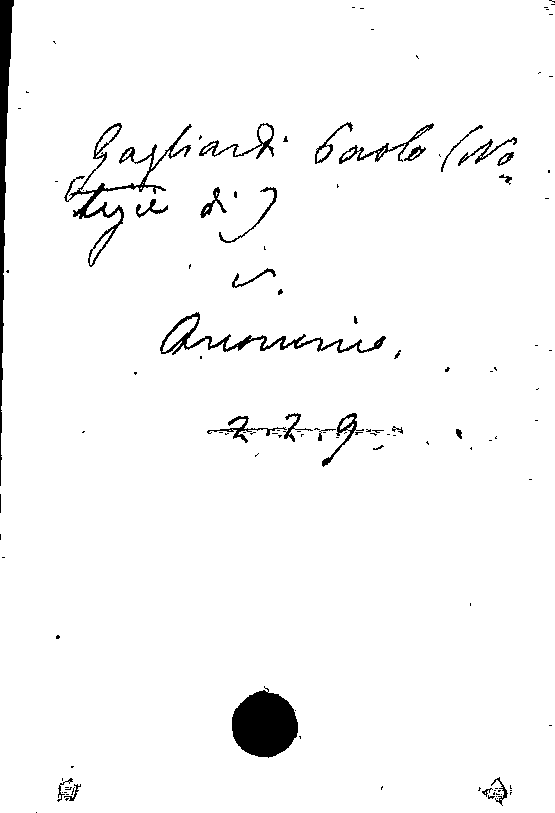 Gagliardi Paolo (No=
tizie di)
v.
Anonimo.
2.2.9